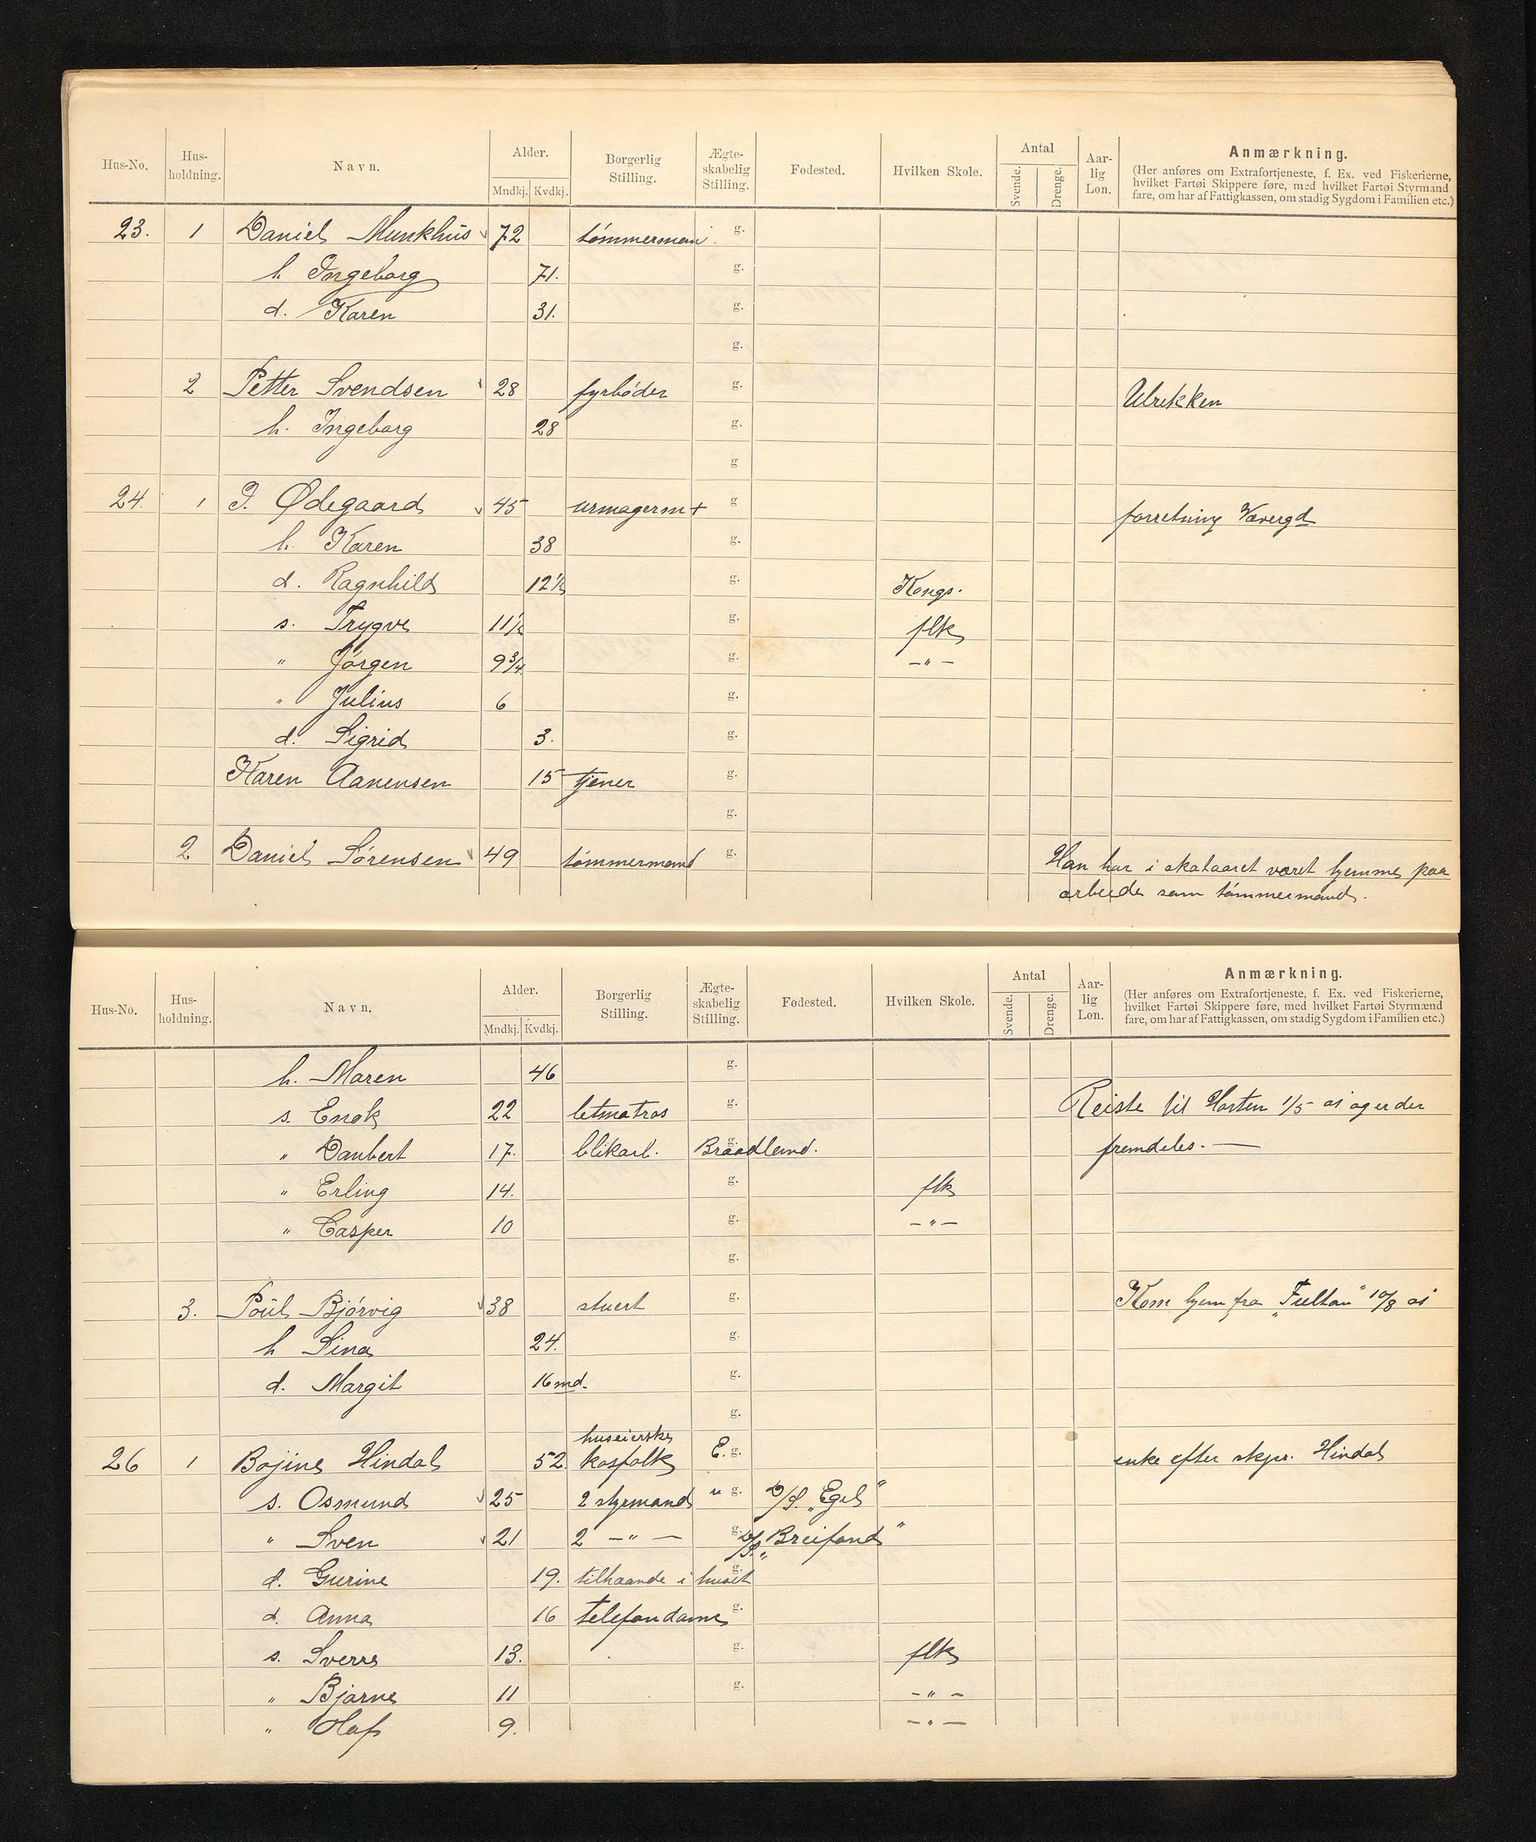 Hus-No. Hus-holdning. Navn. Alder. Mndkj. Kvdkj. Borgerlig Stilling. Ægte-skabelig Stilling. Fødested. Hvilken Skole. Antal Svende. Drenge. Aar-lig Løn. Anmærkning.
(Her anføres om Extrafortjeneste, f. Ex. ved Fiskerierne,
hvilket Fartøi Skippere føre, med hvilket Fartøi Styrmænd
fare, om har af Fattigkassen, om stadig Sygdom i Familien etc.)
23. 1 Daniel Munkhus 72 tømmerman g.
h. Ingeborg 71. g.
d. Karen 31. g.
g.
2 Petter Svendsen 28 fyrbøder g. Ulrikken
h. Ingeborg 28 g.
g
24. 1 P. Ødegaard 45 urmagerm + g forretning Vævergd
h. Karen 38 g.
d. Ragnhild 12½ g. Kongs.
s. Trygve 11½ g. flk
" Jørgen 9¾ g. –"–
" Julius 6 g.
d. Sigrid 3. g.
Karen Aanensen 15 tjener g.
g.
2 Daniel Sørensen 49 tømmermand g. Han har i skataaret været hjemme paa
arbeide som tømmermand.
Hus-No. Hus-holdning. Navn. Alder. Mndkj. Kvdkj. Borgerlig Stilling. Ægte-skabelig Stilling. Fødested. Hvilken Skole. Antal Svende. Drenge. Aar-lig Løn. Anmærkning.
(Her anføres om Extrafortjeneste, f. Ex. ved Fiskerierne,
hvilket Fartøi Skippere føre, med hvilket Fartøi Styrmænd
fare, om har af Fattigkassen, om stadig Sygdom i Familien etc.)
h. Maren 46 g.
s. Enok 22 letmatros g. Reiste til Horten 1/5 og er der
" Daubert 17. blikarb. g. Braadland. fremdeles. —
" Erling 14. g. flk
" Casper 10 g. –"–
g.
3. Poul Bjørvig 38 stuert g. Kom hjem fra "Fultan" 10/8
h Sina 24. g.
d. Margit 16 md. g.
g.
huseierske
26 1 Bojine Hindal 52. kosfolk E. g. enke efter skpr. Hindal
s. Osmund 25 2 styrmand u g. D/S. "Egil"
" Sven 21 2 –"– g. D/S. "Breifond"
d. Gurine 19. tilhaande i huset g.
d. Anna 16 telefondame g.
s. Sverre 13. g. flk
" Bjarne 11 g. –"–
" Olaf 9. –"–